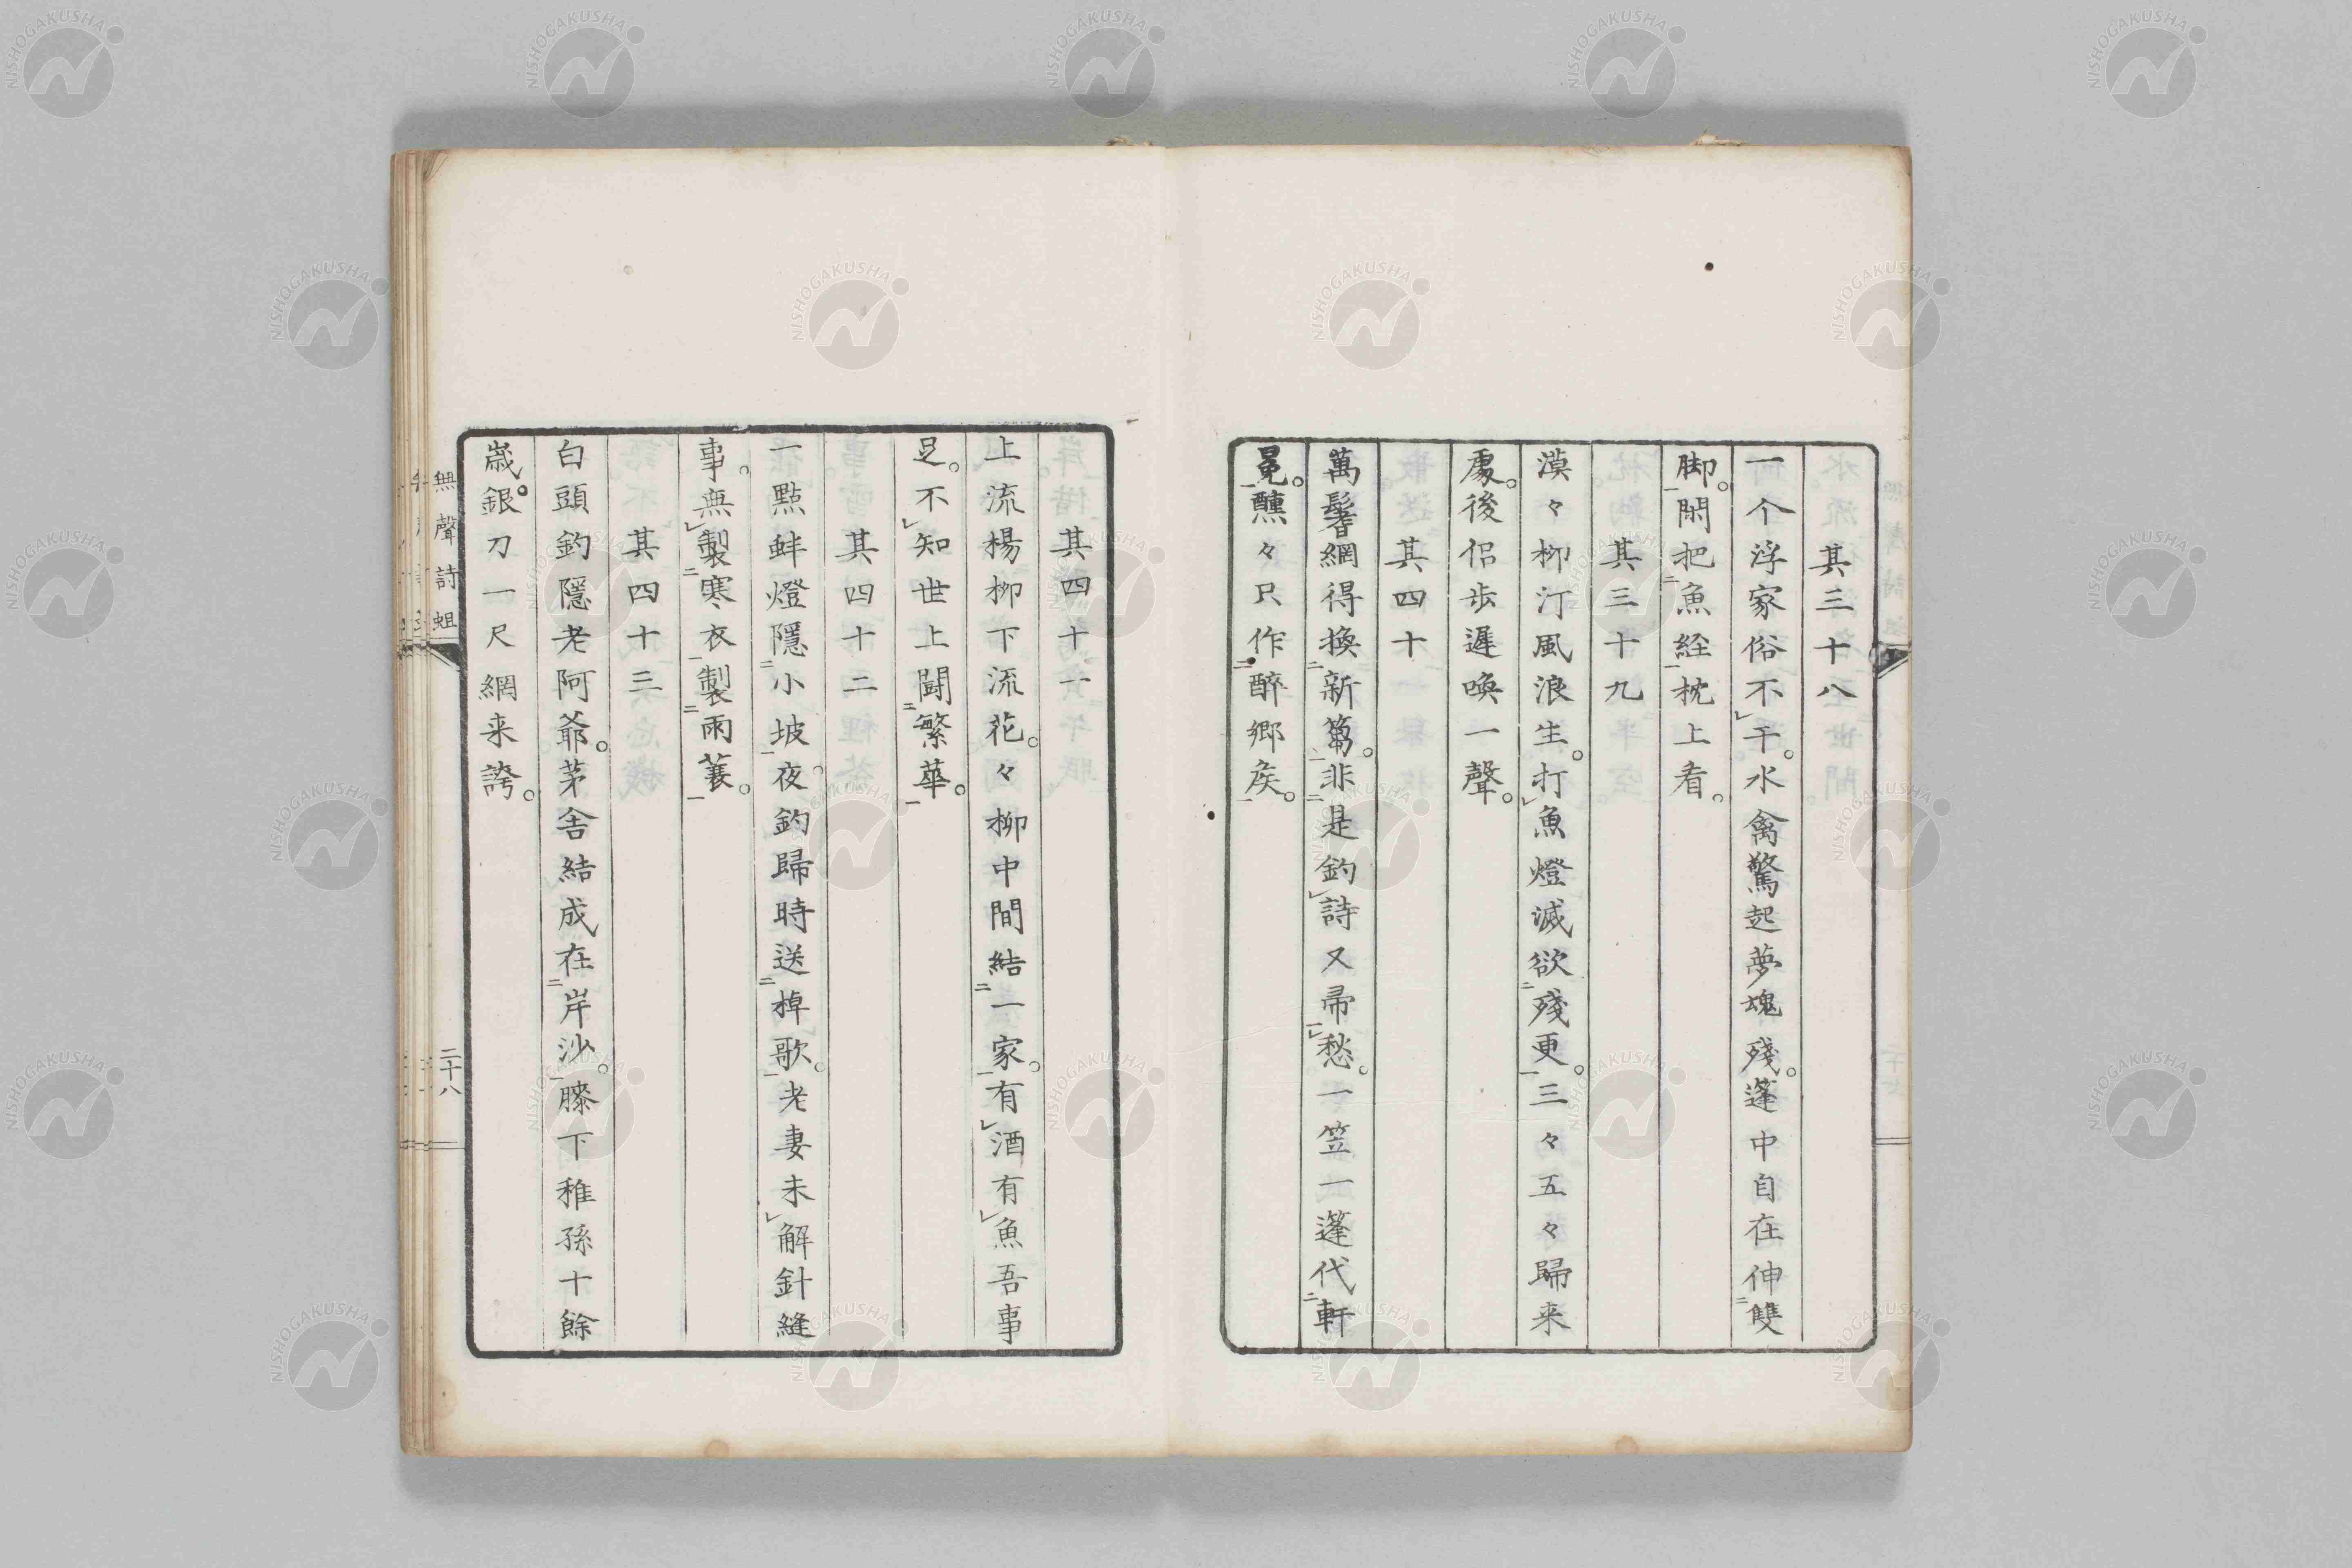 其三十八
一个浮家俗不干。水禽驚起夢魂殘。蓬中自在伸雙
脚。閑把魚経枕上看。
其三十九
漠々柳汀風浪生。打魚燈滅欲殘更。三々五々歸来
處。後侶歩遲喚一聲。
其四十
萬鬙網得換新篘。非是釣詩又帚愁。一笠一蓬代軒
冕。醺々只作醉郷矦。
其四十一
上流楊柳下流花。々柳中間結一家。有酒有魚吾事
足。不知世上闘繁華。
其四十二
一點蚌燈隱小坡。夜釣歸時送棹歌。老妻未解針縫
事。無製寒衣製雨蓑。
其四十三
白頭釣隱老阿爺。茅舎結成在岸沙。膝下稚孫十餘
歳。銀刀一尺網来誇。
無聲詩蛆
二十八
NISHOGAKUSHA